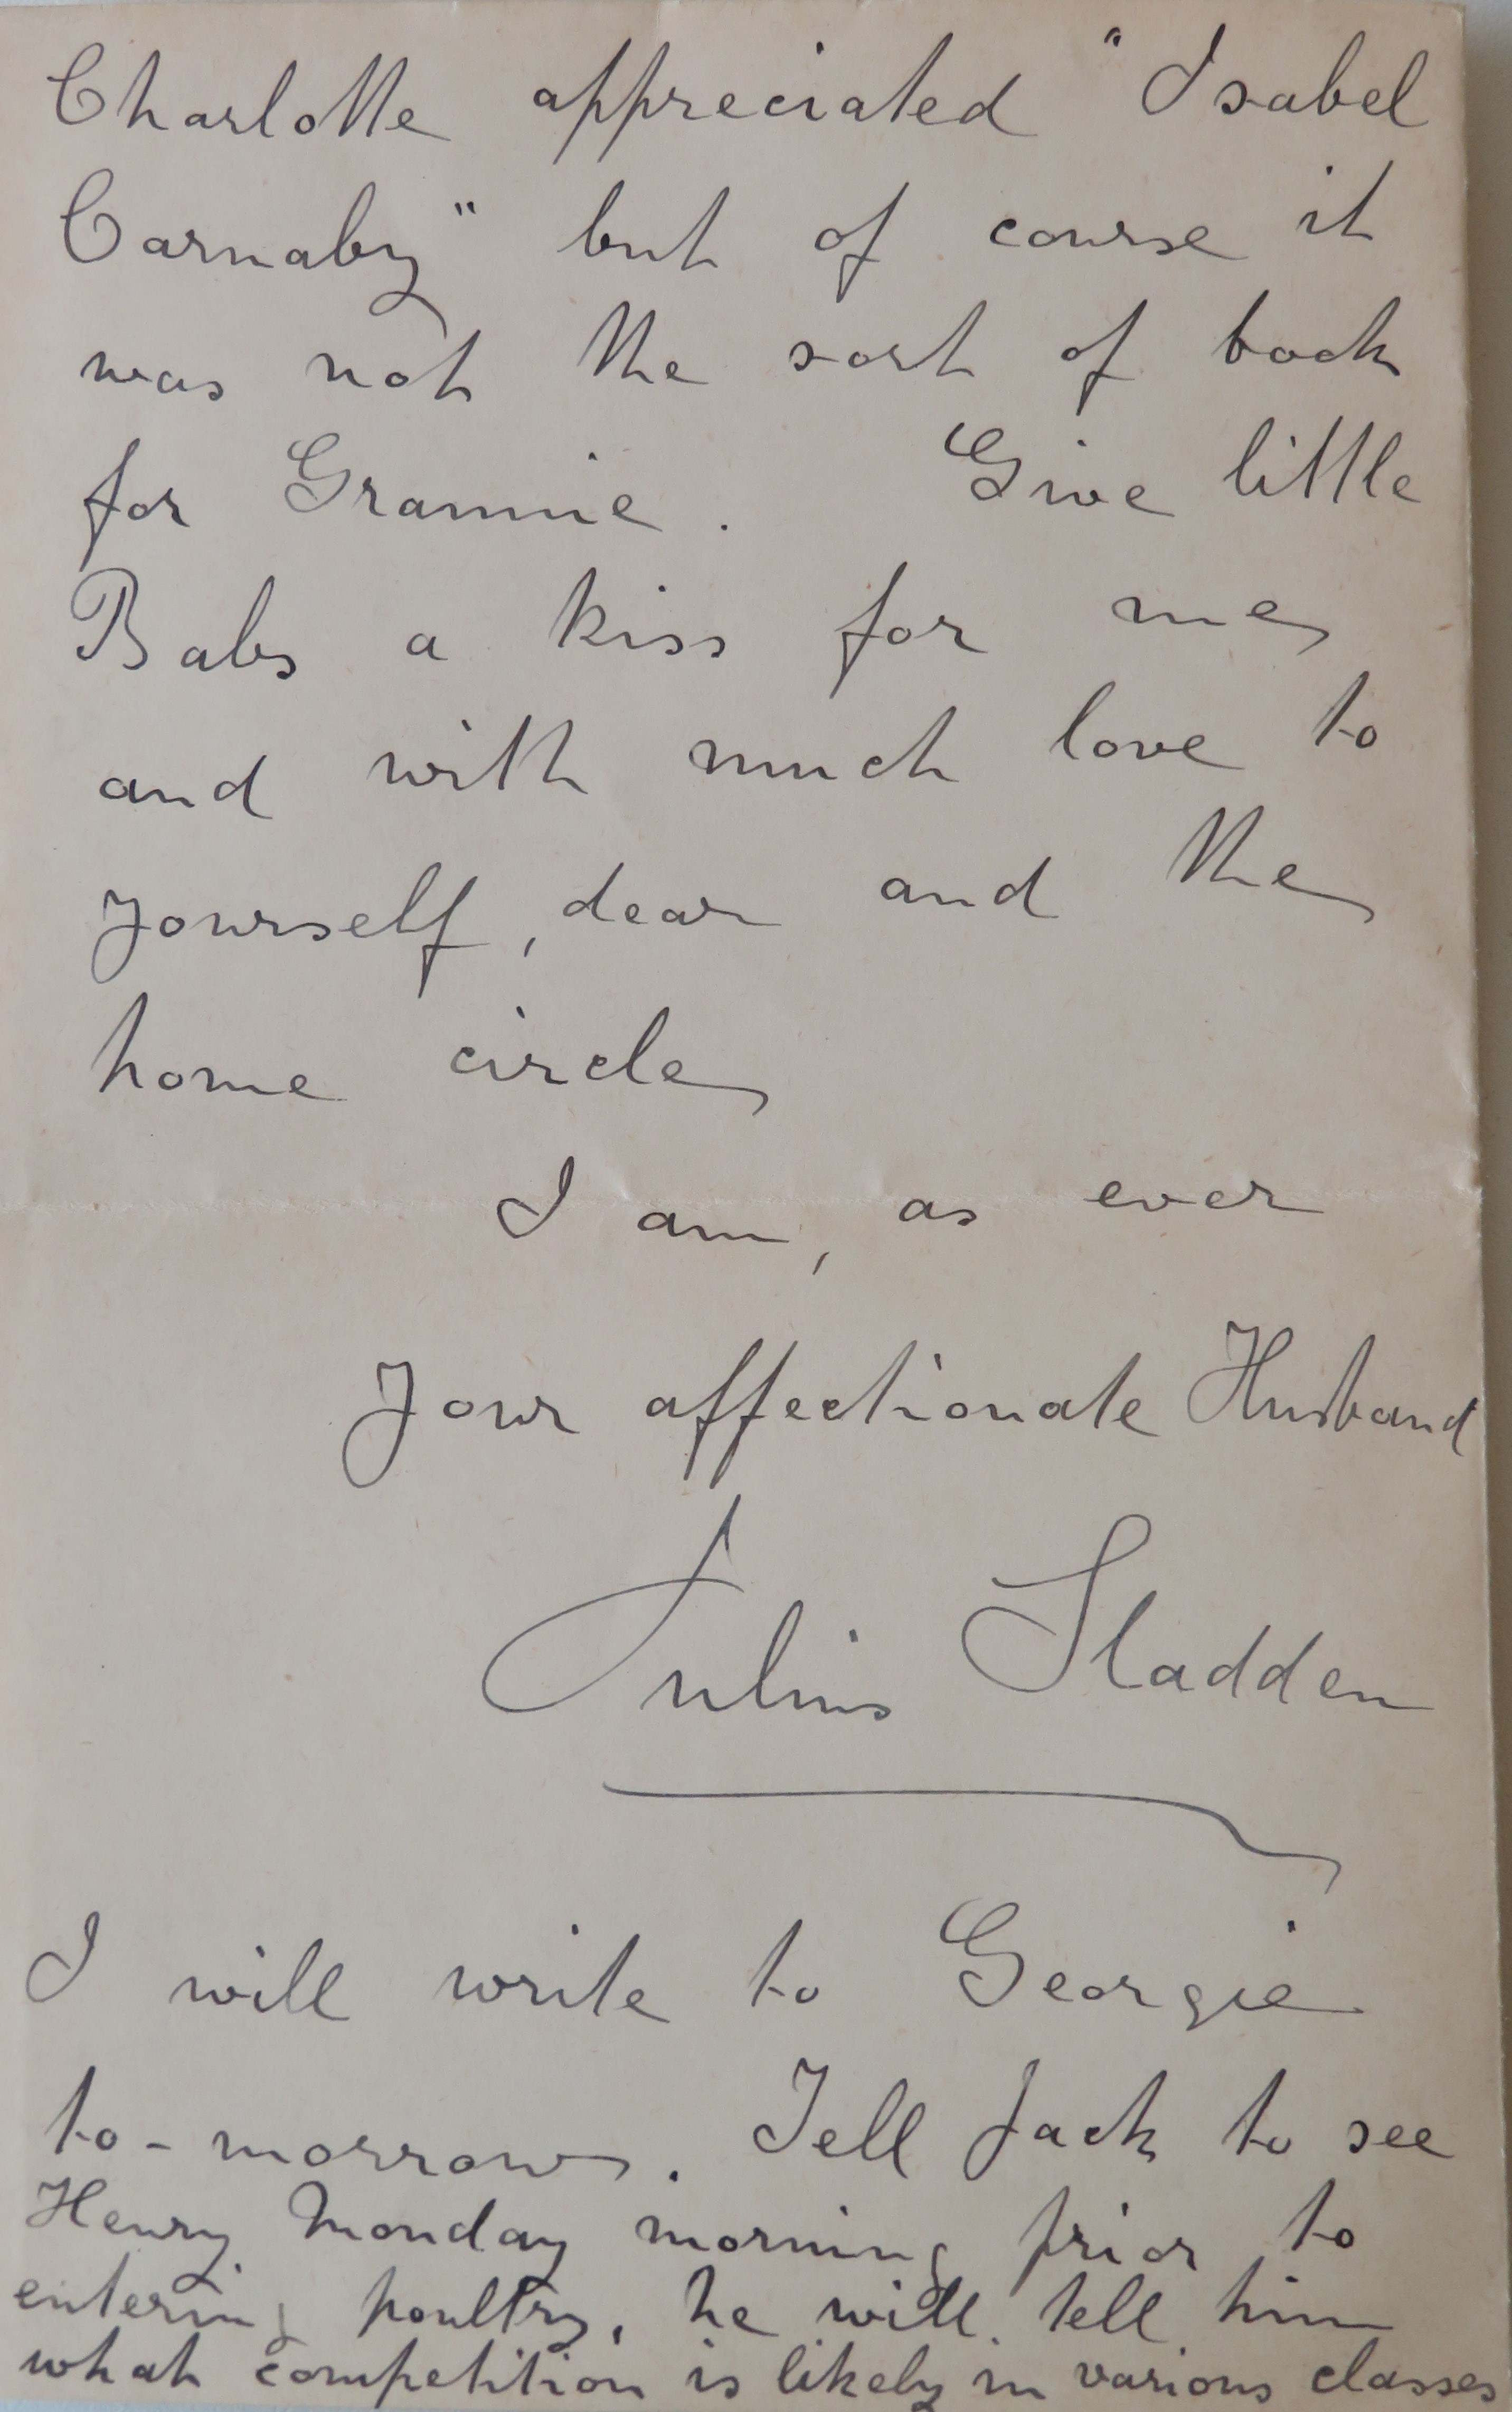 Charlotte appreciated "Isabel
Carnaby" but of course it
was not the sort of book
for Grannie. Give little
Babs a kiss for me
and with much love to
yourself, dear and the
home circle
I am, as ever
Your affectionate Husband
Julius Sladden
I will write to Georgie
to-morrow. Tell Jack to see
Henry Monday morning prior to
entering poultry, he will tell him
what competition is likely in various classes